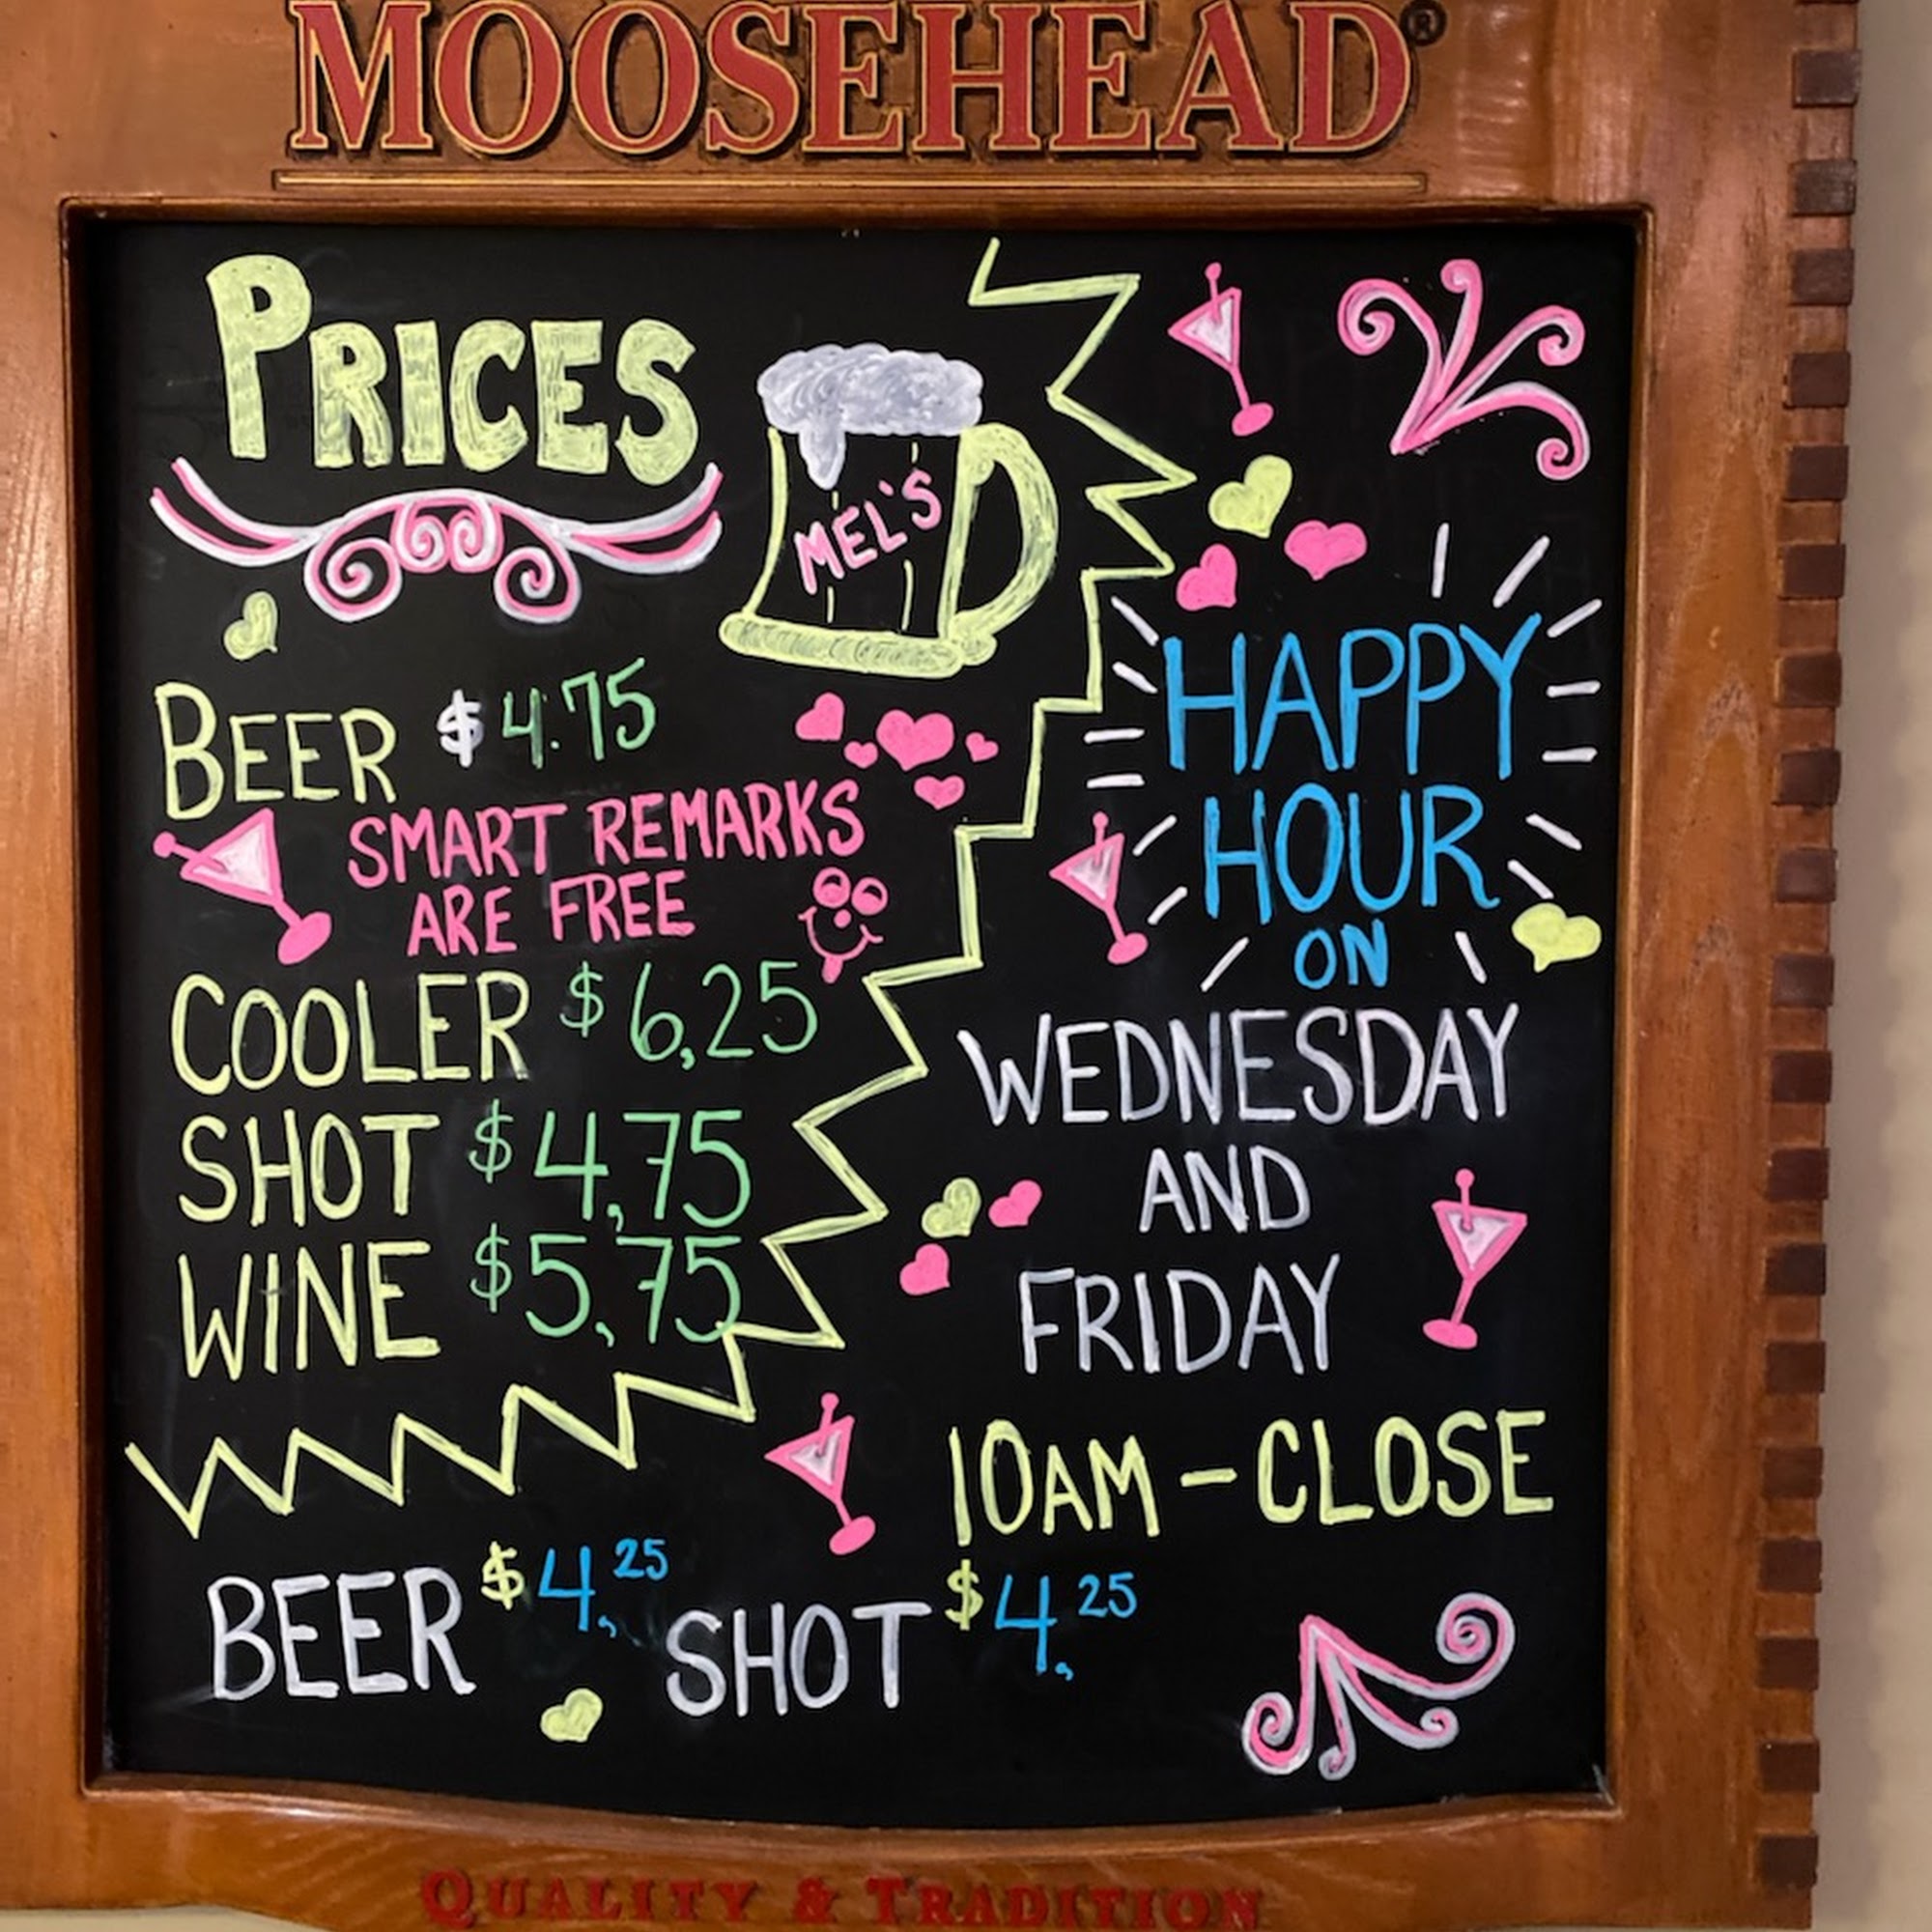 MOOSEHEAD®
PRICES
MEL'S
BEER $4.75
SMART REMARKS
ARE FREE
COOLER $6,25
SHOT $4,75
WINE $5,75
HAPPY
HOUR
ON
WEDNESDAY
AND
FRIDAY
10AM - CLOSE
BEER $4,25 SHOT $4,25
QUALITY & TRADITION